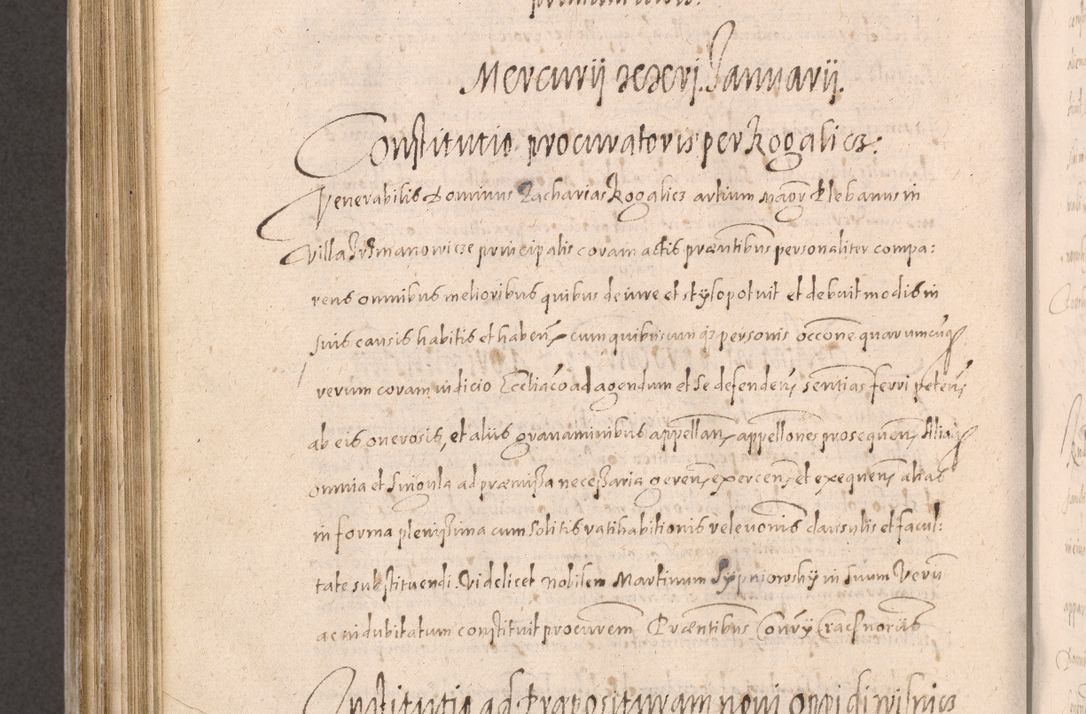 Mercurij xexerj. Januarij.
Constitutio procuratoris per Rogalicz.
Venerabilis Dominus Zacharias Rogalicz artium Magr Plebanus in
villa Irzmanowicze principalis coram actis præntibus personaliter compa:
rens omnibus melioribus quibus de iure et stylo potuit et debuit modis in
suis causis habitis et haben cum quibuscunq personis occone quarumcunq
rerum coram iudicio Eccliaco ad agendum et se defenden sentias ferri peten
ab eis onerosis, et aliis grauaminibus appellan appellones prosequen Aliaq
omnia et singula ad præmissa necessaria geren exercen et exequen alias
in forma plenissima cum solitis ratihabitionis releuonis clausulis et facul:
tate substituendi. Videlicet nobilem Martinum Sypniowsky in suum Verum
ac indubitatum constituit procurem Præntibus
Institutio ad Præposituram noui oppidi wisnicz